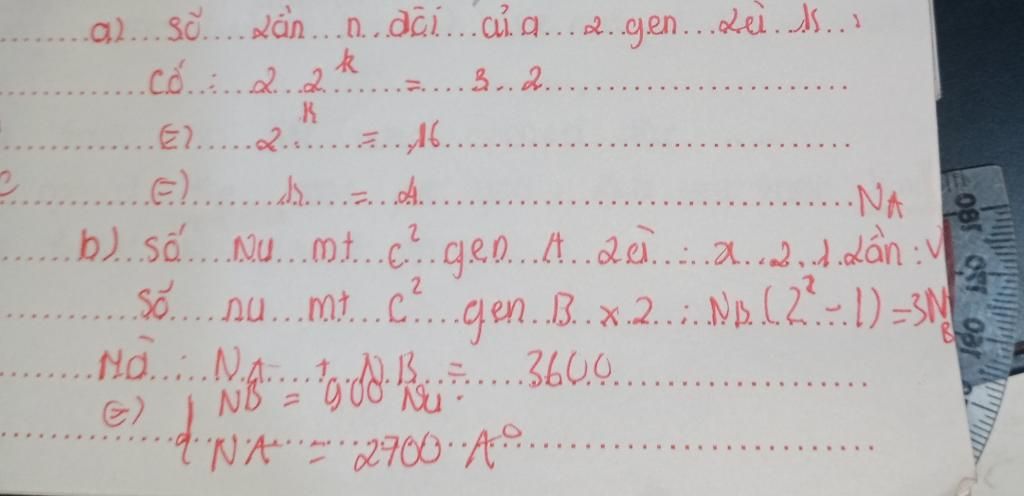 a) số lần n. đôi của 2 gen lài k:
có: 2. 2^k = 3 2
(=) 2^k = 16
(=) k = 4
NA
b) số Nu mt c² gen A lei: x 2. 1 lần:
Số nu mt c² gen B x 2: NB (2² - 1) = 3NB
Mà: NA + NB = 3600
(=) { NB = 900 Nu.
NA = 2700 A°